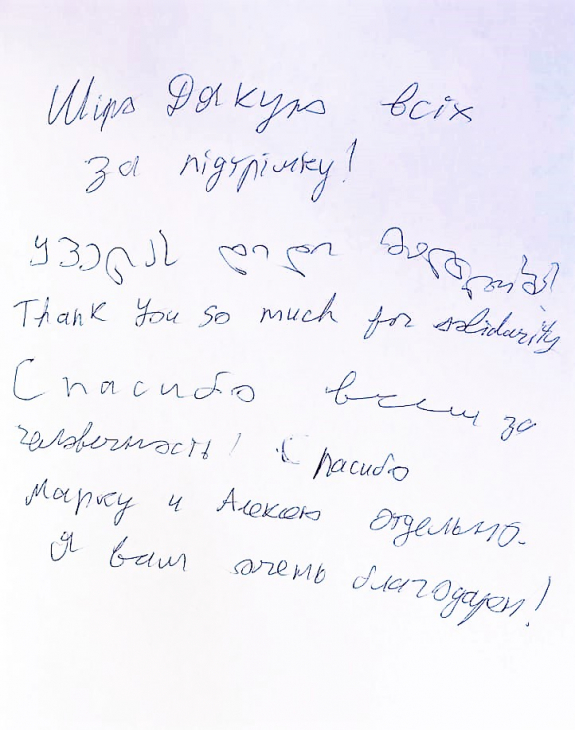 Шіро Дякую всіх
за підтрімку!
ყველას დიდი მადლობა!
Thank you so much for solidarity
Спасибо всем за
человечность! Спасибо
Марку и Алексею отдельно.
Я вам очень благодарен!